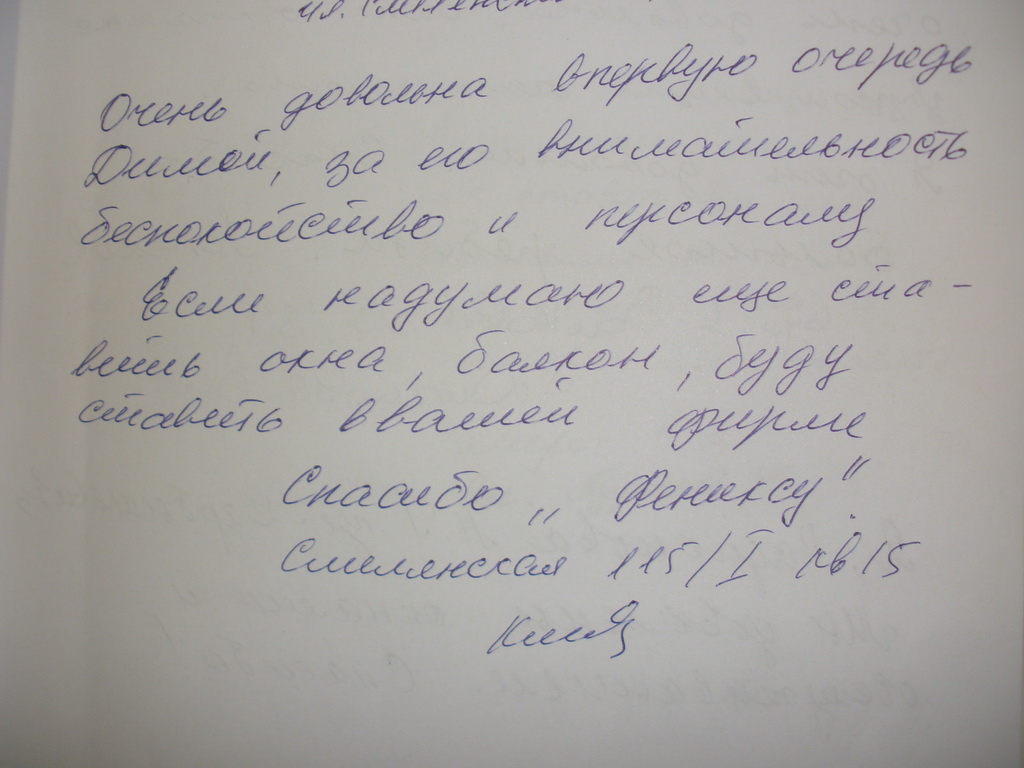 ул. Смелянск
Очень довольна впервую очередь
Димой, за его внимательность
беспокойство и персоналу
Если надумаю еще ста-
вить окна, балкон, буду
ставить в вашей фирме
Спасибо „Фениксу"
Смелянская 115/I кв 15